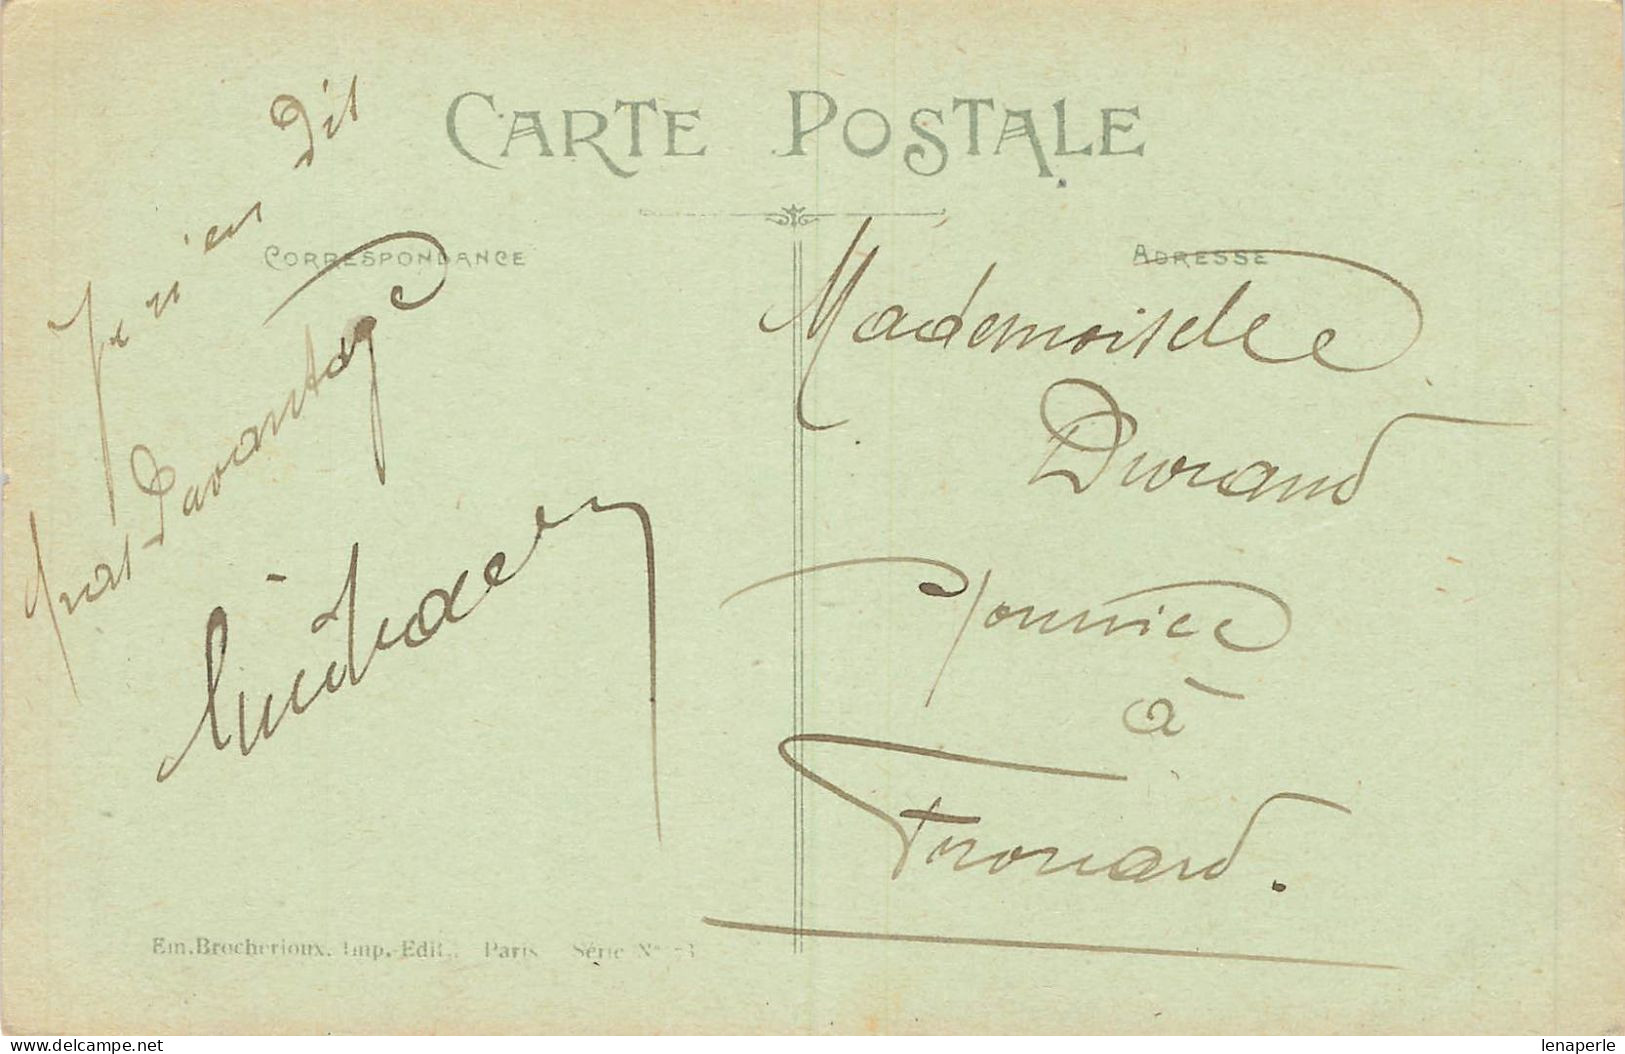 CARTE POSTALE
CORRESPONDANCE
Je n'en dit
pas Davantage
ADRESSE
Mademoiselle
Durand
à
Frouard.
Em. Brocherioux. Imp.-Edit.. Paris Série N°
delcampe.net
lenaperle